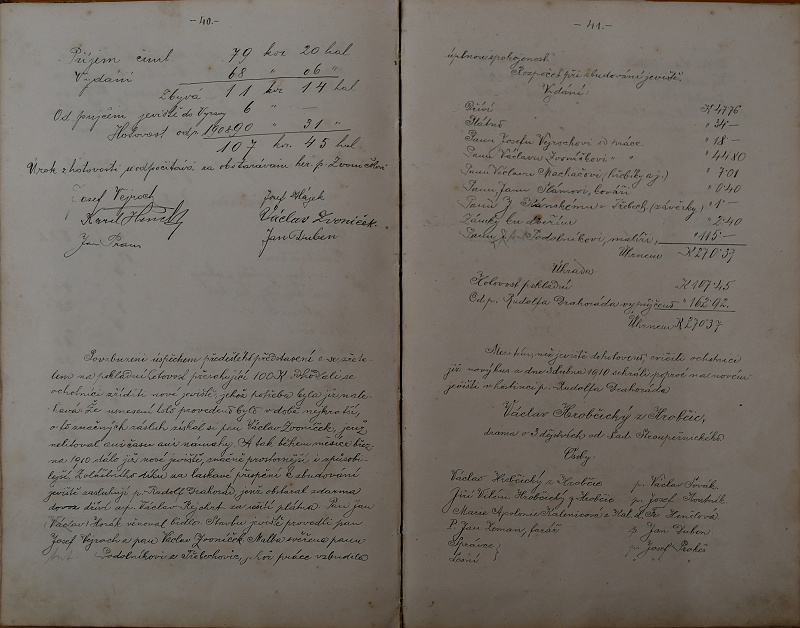 - 40. -
Příjem činil 79 kor 20 hal
Vydání 68 " 06 "
Zbývá 11 kor 14 hal
Od půjčení jeviště do Výravy 6 " —
Hotovost 90 " 31 "
107 kor. 45 hal
Úrok z hotovosti
Josef Vejroch Josef Hájek
Václav Zvoníček
Jan Duben
Povzbuzeni úspěchem předešlých představení a se zřete-
lem na pokladní hotovost přesahující 100 K rozhodli se
ochotníci zříditi nové jeviště, jehož potřeba byla již nale-
havá. Že usnesení toto provedeno bylo v době nejkratší,
o to značných zásluh získal si pan Václav Zvoníček, jenž
nelitoval ani času ani námahy. A tak během měsíce břez-
na 1910 stálo již nové jeviště, značně prostornější i způsobi-
lejší. Zvláštního díku za laskavé přispění k zbudování
jeviště zasluhují p. Rudolf Drahorád, jenž obstaral zdarma
dovoz dříví a p. Václav Rejchrt za ušití plátna. Pan Jan
Václav Horák věnoval bidlo. Stavbu jeviště provedli pan
Josef Vejroch a pan Václav Zvoníček. Malba svěřena panu
Podolníkovi z Třebechovic, jehož práce vzbudila
- 41. -
úplnou spokojenost.
Rozpočet při zbudování jeviště.
Vydání:
Dříví K 47.76
Plátno " 34 —
Panu Josefu Vejrochovi od práce " 18 —
Panu Václavu Zvoníčkovi " " " 44.80
Panu Václavu (hřebíky a j.) " 7.01
Panu Janu kováři " 0.40
Panu J. v Třebech. (závěrky) " 1 —
Zámky ku dveřím " 2.40
Panu Podolníkovi, malíři, " 115 —
Úhrnem K 270.37
Úhrada
Hotovost pokladní K 107.45
Od p. Rudolfa Drahoráda vypůjčeno " 162.92.
Úhrnem K 270.37
Mezi tím, než jeviště dohotoveno, cvičili ochotníci
již nový kus a dne 3. dubna 1910 sehráli poprvé na novém
jevišti v hostinci p. Rudolfa Drahoráda
Václav Hrobčický z Hrobčic,
drama o 3 dějstvích od Lad. Stroupežnického
Osoby:
Václav Hrobčický z Hrobčic p. Václav Novák
Jiří Vilém Hrobčický z Hrobčic p. Josef
Marie Apolonie Kalenicová z Kal. Henclová
P. Jan Zeman, farář p. Jan Duben
Správce p. Josef Prokeš